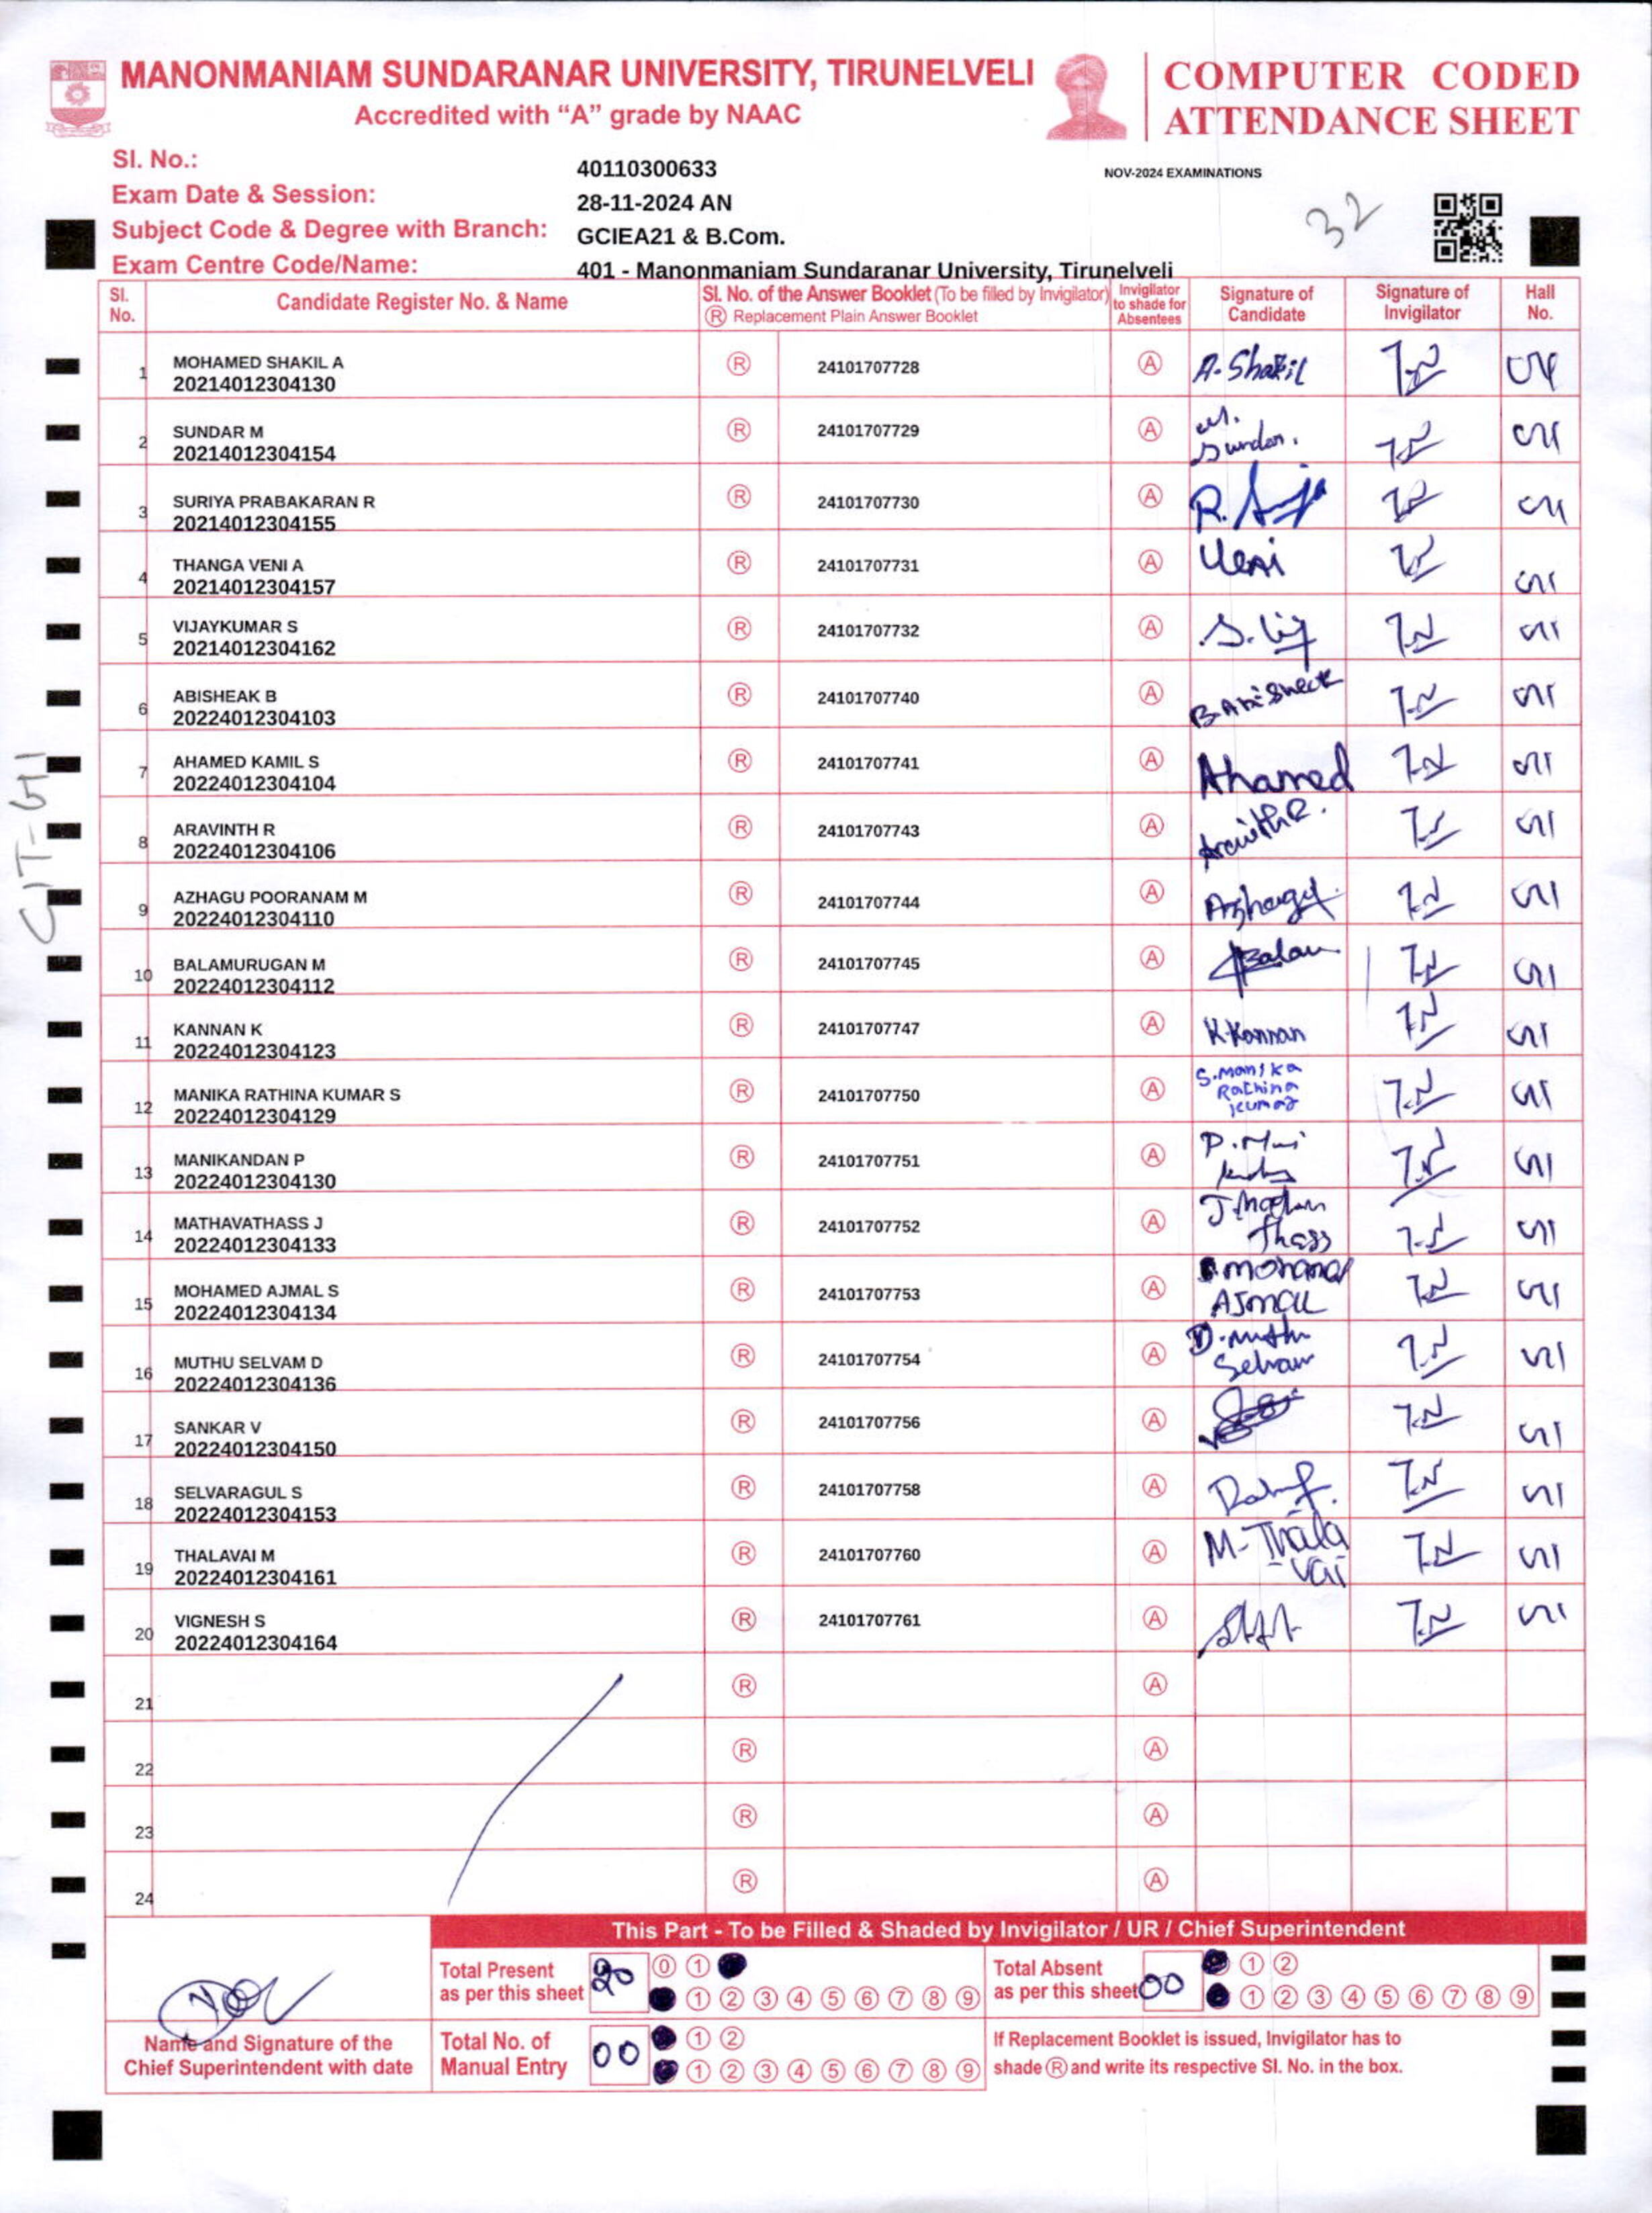 MANONMANIAM SUNDARANAR UNIVERSITY, TIRUNELVELI
Accredited with “A” grade by NAAC
COMPUTER CODED
ATTENDANCE SHEET
Sl. No.: 40110300633
NOV-2024 EXAMINATIONS
Exam Date & Session: 28-11-2024 AN
32
Subject Code & Degree with Branch: GCIEA21 & B.Com.
Exam Centre Code/Name: 401 - Manonmaniam Sundaranar University, Tirunelveli
Sl. No. Candidate Register No. & Name Sl. No. of the Answer Booklet (To be filled by Invigilator) Ⓡ Replacement Plain Answer Booklet Invigilator to shade for Absentees Signature of Candidate Signature of Invigilator Hall No.
1 MOHAMED SHAKIL A Ⓡ 24101707728 Ⓐ A. Shakil
20214012304130
2 SUNDAR M Ⓡ 24101707729 Ⓐ M. Sundar.
20214012304154
3 SURIYA PRABAKARAN R Ⓡ 24101707730 Ⓐ
20214012304155
4 THANGA VENI A Ⓡ 24101707731 Ⓐ Veni
20214012304157
5 VIJAYKUMAR S Ⓡ 24101707732 Ⓐ
20214012304162
6 ABISHEAK B Ⓡ 24101707740 Ⓐ B. Abisheck
20224012304103
7 AHAMED KAMIL S Ⓡ 24101707741 Ⓐ Ahamed
20224012304104
8 ARAVINTH R Ⓡ 24101707743 Ⓐ
20224012304106
9 AZHAGU POORANAM M Ⓡ 24101707744 Ⓐ Azhagu
20224012304110
10 BALAMURUGAN M Ⓡ 24101707745 Ⓐ
20224012304112
11 KANNAN K Ⓡ 24101707747 Ⓐ K. Kannan
20224012304123
12 MANIKA RATHINA KUMAR S Ⓡ 24101707750 Ⓐ S. Manika Rathina Kumar
20224012304129
13 MANIKANDAN P Ⓡ 24101707751 Ⓐ
20224012304130
14 MATHAVATHASS J Ⓡ 24101707752 Ⓐ
20224012304133
15 MOHAMED AJMAL S Ⓡ 24101707753 Ⓐ
20224012304134
16 MUTHU SELVAM D Ⓡ 24101707754 Ⓐ D. Muthu Selvam
20224012304136
17 SANKAR V Ⓡ 24101707756 Ⓐ
20224012304150
18 SELVARAGUL S Ⓡ 24101707758 Ⓐ
20224012304153
19 THALAVAI M Ⓡ 24101707760 Ⓐ M. Thala vai
20224012304161
20 VIGNESH S Ⓡ 24101707761 Ⓐ
20224012304164
21 Ⓡ Ⓐ
22 Ⓡ Ⓐ
23 Ⓡ Ⓐ
24 Ⓡ Ⓐ
This Part - To be Filled & Shaded by Invigilator / UR / Chief Superintendent
Total Present as per this sheet 20 0 1
1 2 3 4 5 6 7 8 9
Total Absent as per this sheet 00 1 2
1 2 3 4 5 6 7 8 9
Name and Signature of the
Chief Superintendent with date
Total No. of Manual Entry 00 1 2
1 2 3 4 5 6 7 8 9
If Replacement Booklet is issued, Invigilator has to
shade Ⓡ and write its respective Sl. No. in the box.